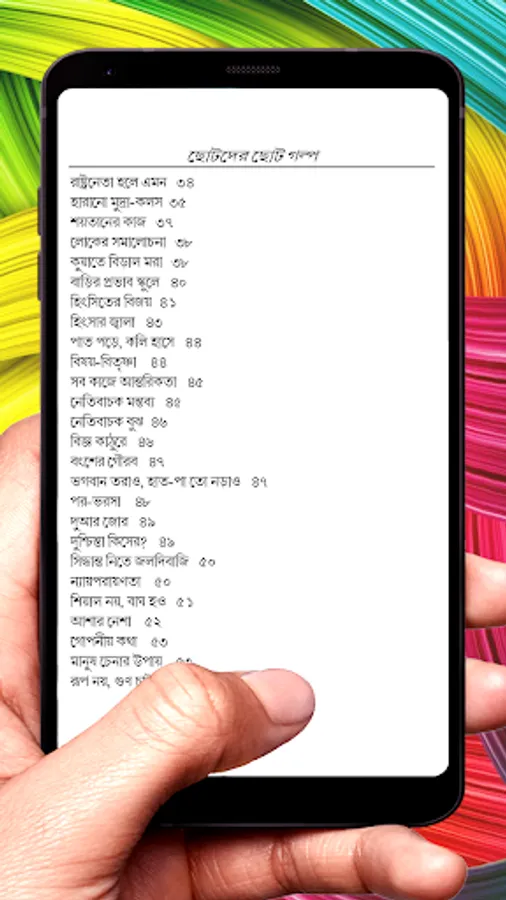 ছোটদের ছোট গল্প
রাষ্ট্রনেতা হলে এমন ৩৪
হারানো মুদ্রা-কলস ৩৫
শয়তানের কাজ ৩৭
লোকের সমালোচনা ৩৮
কুয়াতে বিড়াল মরা ৩৮
বাড়ির প্রভাব স্কুলে ৪০
হিংসিতের বিজয় ৪১
হিংসার জ্বালা ৪৩
পাত পড়ে, কলি হাসে ৪৪
বিষয়-বিতৃষ্ণা ৪৪
সব কাজে আন্তরিকতা ৪৫
নেতিবাচক মন্তব্য ৪৫
নেতিবাচক বুঝ ৪৬
বিজ্ঞ কাঠুরে ৪৬
বংশের গৌরব ৪৭
ভগবান তরাও, হাত-পা তো নড়াও ৪৭
পর-ভরসা ৪৮
দুআর জোর ৪৯
দুশ্চিন্তা কিসের? ৪৯
সিদ্ধান্ত নিতে জলদিবাজি ৫০
ন্যায়পরায়ণতা ৫০
শিয়াল নয়, বাঘ হও ৫১
আশার নেশা ৫২
গোপনীয় কথা ৫৩
মানুষ চেনার উপায় ৫৩
রূপ নয়, গুণ